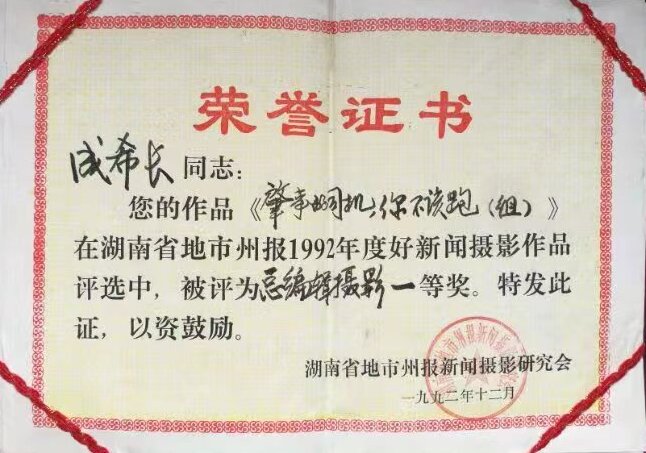 荣誉证书
成希长同志：
您的作品《肇事司机，你不该跑（组）》
在湖南省地市州报1992年度好新闻摄影作品
评选中，被评为总编辑摄影一等奖。特发此
证，以资鼓励。
湖南省地市州报新闻摄影研究会
一九九二年十二月